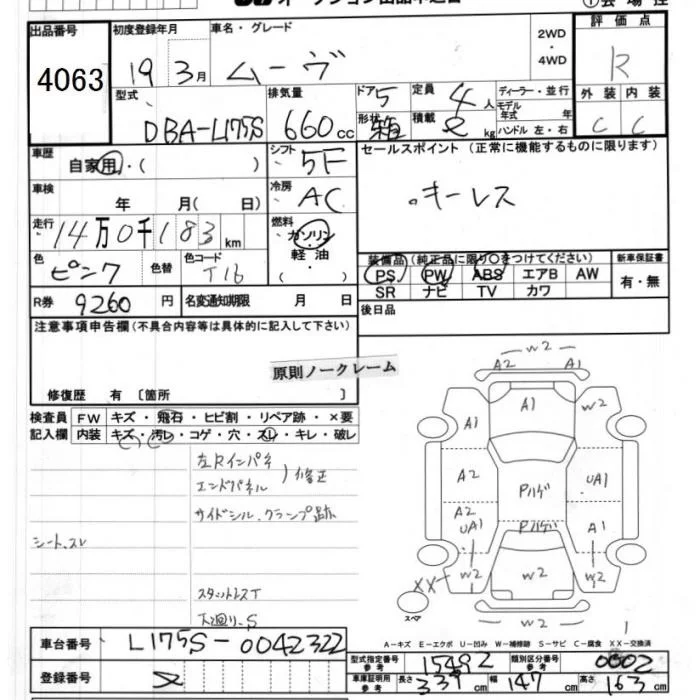 出品番号
4063
初度登録年月
19年 3月
車名・グレード
ムーヴ
2WD
・
4WD
評価点
R
型式
DBA-L175S
排気量
660cc
ドア
5
形状
箱
定員
4人
積載
kg
ディーラー・並行
モデル年式 年
ハンドル 左・右
外装 内装
C C
車歴
自家用・( )
シフト
5F
セールスポイント(正常に機能するものに限ります)
。キーレス
車検
年 月( 日)
冷房
AC
走行
14万0千183km
燃料
ガソリン
・
軽油
・
色
ピンク
色替
色コード
T16
装備品(純正品に限り○をつけてください)
PS PW ABS エアB AW
SR ナビ TV カワ
新車保証書
有・無
R券
9260円
名変通知期限 月 日
後日品
注意事項申告欄(不具合内容等は具体的に記入して下さい)
原則ノークレーム
修復歴 有〔箇所 〕
検査員記入欄
FW キズ・飛石・ヒビ割・リペア跡・×要
内装 キズ・汚レ・コゲ・穴・スレ・キレ・破レ
左Rインパネ
エンドパネル
)修正
サイドシル、クランプ跡
シート、スレ
スタットレスT
下廻り、S
W2
A2 A1
A1 A1 W2
A2 Pハゲ UA1
A2 UA1 Pハゲ A1
XX W2 W2 W2
スペア
W2
1
A-キズ E-エクボ U-凹み W-補修跡 S-サビ C-腐食 XX-交換済
車台番号
L175S-0042322
登録番号
型式指定番号
参考
15492
類別区分番号
参考
0002
車庫証明用
参考
長さ 339cm 幅 147cm 高さ 163cm